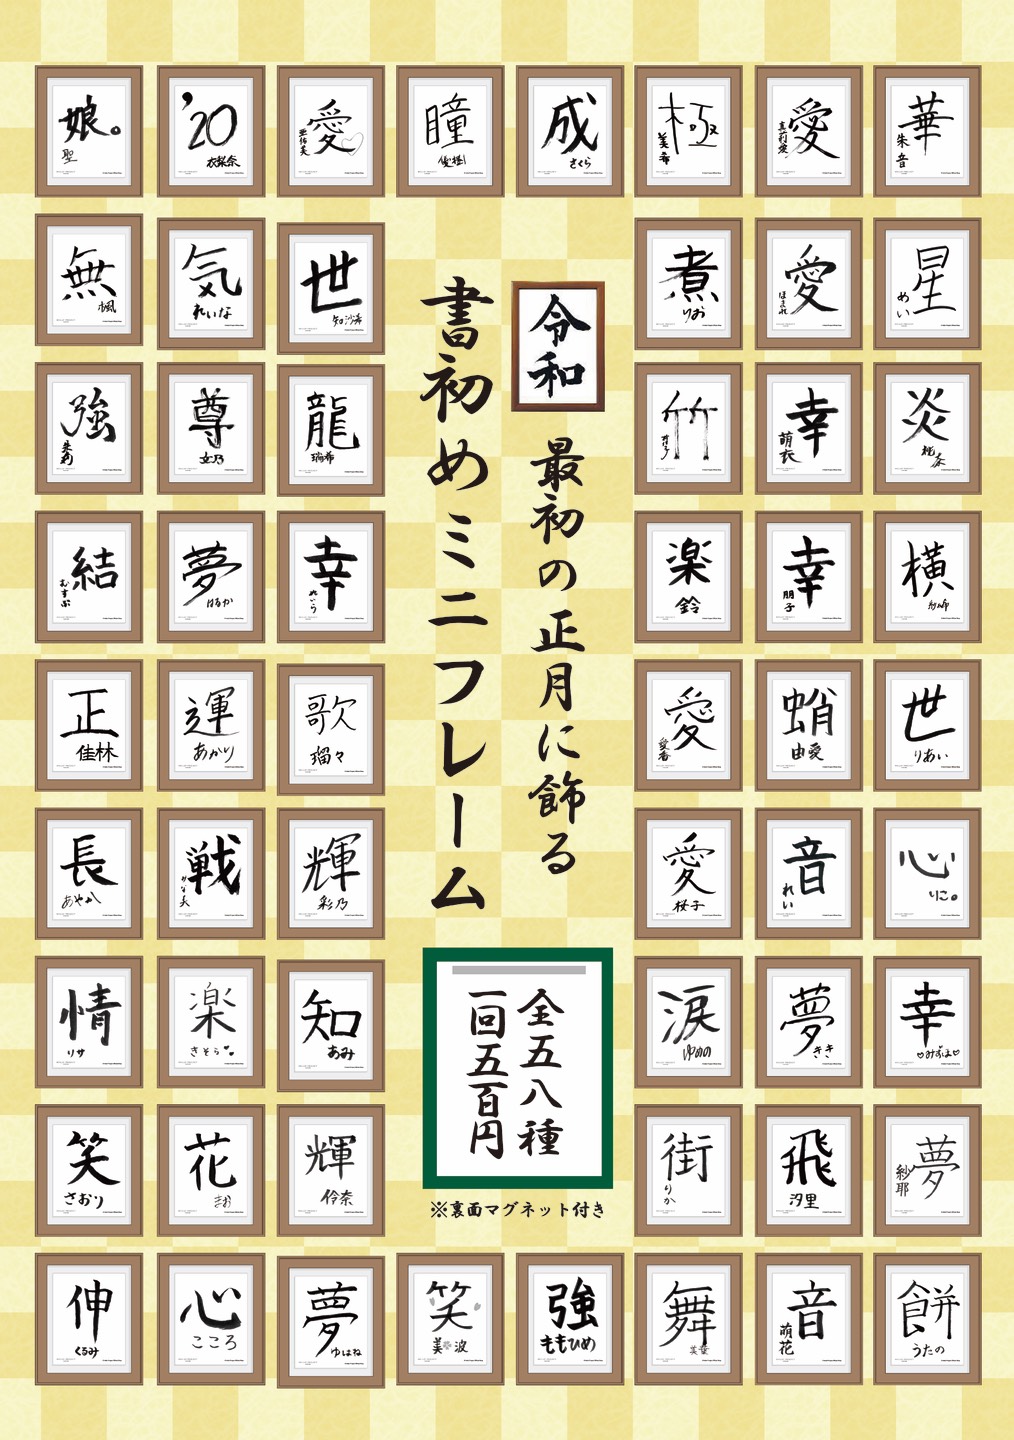 令和
最初の正月に飾る
書初めミニフレーム
全五八種
一回五百円
※裏面マグネット付き
娘。
聖
'20
衣梨奈
愛
亜佑美
瞳
優樹
成
さくら
極
美希
愛
真莉愛
華
朱音
無
楓
気
れいな
世
知沙希
煮
りお
愛
ほまれ
星
めい
強
朱莉
尊
女乃
龍
瑞希
竹
幸
萌衣
炎
結
むすぶ
夢
はるか
幸
れいら
楽
鈴
幸
朋子
横
正
佳林
運
あかり
歌
瑠々
愛
愛香
蛸
由愛
世
りあい
長
あやぱ
戦
かなえ
輝
彩乃
愛
桜子
音
れい
心
りこ。
情
リサ
楽
きそら
知
あみ
涙
ゆめの
夢
きき
幸
♡みずほ♡
笑
さおり
花
まお
輝
伶奈
街
りか
飛
汐里
夢
紗耶
伸
くるみ
心
こころ
夢
ゆはね
笑
美波
強
ももひめ
舞
英
音
萌花
餅
うたの